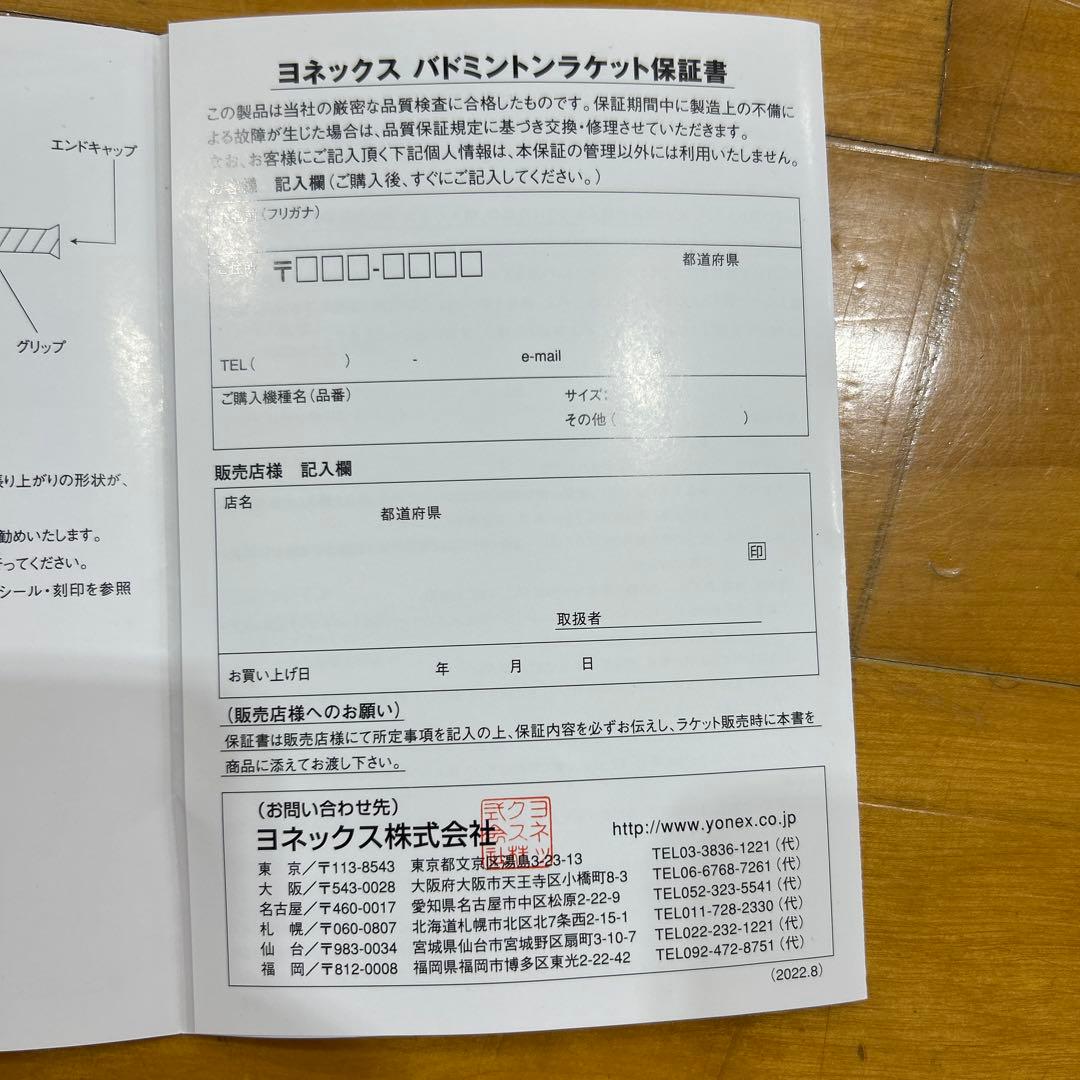 エンドキャップ
グリップ
張り上がりの形状が、
勧めいたします。
行ってください。
シール・刻印を参照
ヨネックス バドミントンラケット保証書
この製品は当社の厳密な品質検査に合格したものです。保証期間中に製造上の不備に
よる故障が生じた場合は、品質保証規定に基づき交換・修理させていただきます。
なお、お客様にご記入頂く下記個人情報は、本保証の管理以外には利用いたしません。
お客様 記入欄(ご購入後、すぐにご記入してください。)
(フリガナ)
〒□□□-□□□□ 都道府県
TEL( ) - e-mail
ご購入機種名(品番) サイズ:
その他( )
販売店様 記入欄
店名
都道府県
印
取扱者
お買い上げ日 年 月 日
(販売店様へのお願い)
保証書は販売店様にて所定事項を記入の上、保証内容を必ずお伝えし、ラケット販売時に本書を
商品に添えてお渡し下さい。
(お問い合わせ先)
ヨネックス株式会社 http://www.yonex.co.jp
ヨネックス株式会社
東 京/〒113-8543 東京都文京区湯島3-23-13 TEL03-3836-1221(代)
大 阪/〒543-0028 大阪府大阪市天王寺区小橋町8-3 TEL06-6768-7261(代)
名古屋/〒460-0017 愛知県名古屋市中区松原2-22-9 TEL052-323-5541(代)
札 幌/〒060-0807 北海道札幌市北区北7条西2-15-1 TEL011-728-2330(代)
仙 台/〒983-0034 宮城県仙台市宮城野区扇町3-10-7 TEL022-232-1221(代)
福 岡/〒812-0008 福岡県福岡市博多区東光2-22-42 TEL092-472-8751(代)
(2022.8)